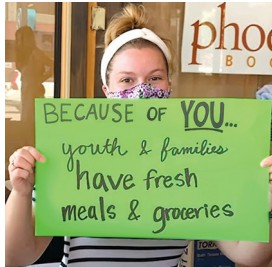 phoe
BOO
BECAUSE OF YOU...
youth & families
have fresh
meals & groceries